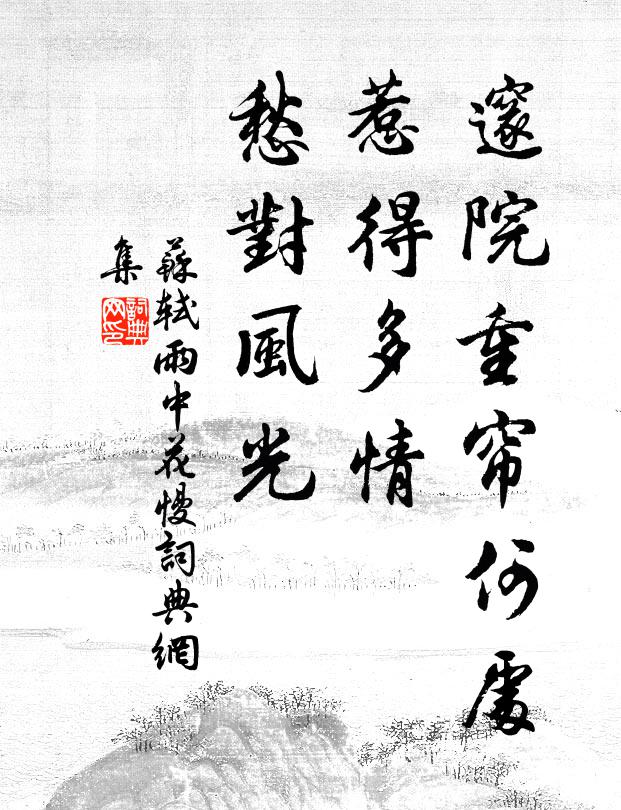 邃院重帘何處
惹得多情
愁對風光
蘇軾雨中花慢詞典網
集
詞典
网印